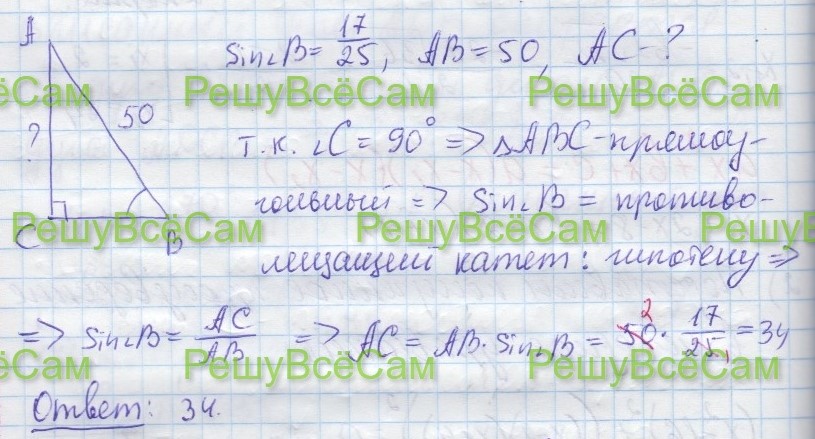 A
sin∠B = 17/25, AB = 50, AC - ?
50
?
т.к. ∠C = 90° => ΔABC - прямоу-
гольный => Sin∠B = противо-
C
B
лежащий катет : гипотену =>
=> Sin∠B = AC/AB => AC = AB · Sin∠B = 50 2 · 17/25 1 = 34
Ответ: 34.
РешуВсёСам
РешуВсёСам
РешуВсёСам
РешуВсёСам
РешуВсёСам
РешуВсёСам
РешуВсёСам
РешуВсёСам
РешуВсёСам